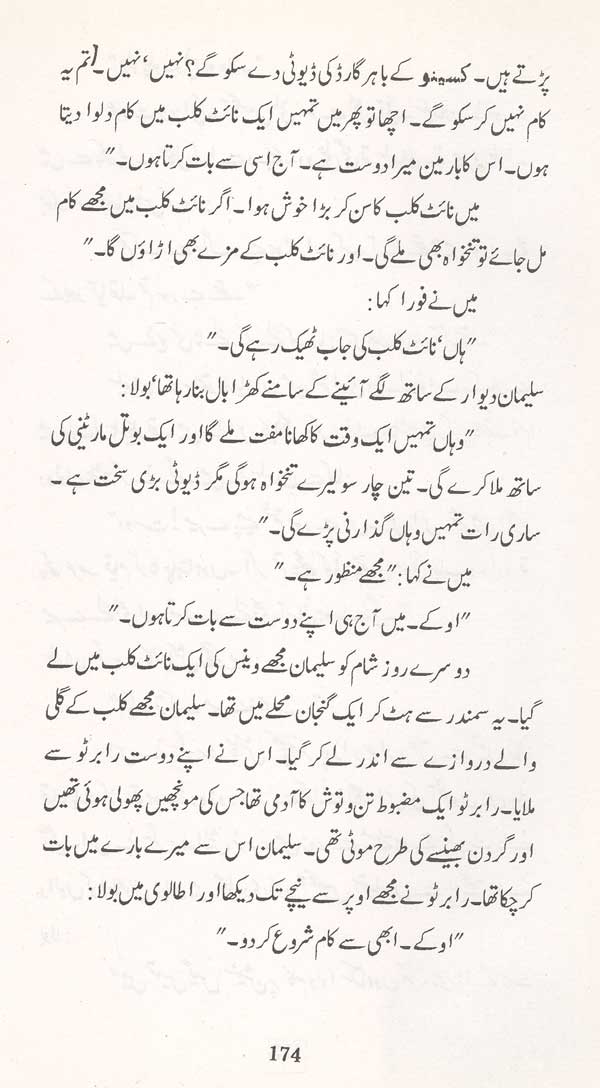 پڑتے ہیں۔ کسینو کے باہر گارڈ کی ڈیوٹی دے سکو گے؟ نہیں‘ نہیں۔ [تم یہ
کام نہیں کر سکو گے۔ اچھا تو پھر میں تمہیں ایک نائٹ کلب میں کام دلوا دیتا
ہوں۔ اس کا بار مین میرا دوست ہے۔ آج اسی سے بات کرتا ہوں۔"
میں نائٹ کلب کا سن کر بڑا خوش ہوا۔ اگر نائٹ کلب میں مجھے کام
مل جائے تو تنخواہ بھی ملے گی۔ اور نائٹ کلب کے مزے بھی اڑاؤں گا۔"
میں نے فوراً کہا:
"ہاں‘ نائٹ کلب کی جاب ٹھیک رہے گی۔"
سلیمان دیوار کے ساتھ لگے آئینے کے سامنے کھڑا بال بنا رہا تھا‘ بولا:
"وہاں تمہیں ایک وقت کا کھانا مفت ملے گا اور ایک بوتل مارٹنی کی
ساتھ ملا کرے گی۔ تین چار سو لیرے تنخواہ ہو گی مگر ڈیوٹی بڑی سخت ہے۔
ساری رات تمہیں وہاں گذارنی پڑے گی۔"
میں نے کہا: "مجھے منظور ہے۔"
"او کے۔ میں آج ہی اپنے دوست سے بات کرتا ہوں۔"
دوسرے روز شام کو سلیمان مجھے وینس کی ایک نائٹ کلب میں لے
گیا۔ یہ سمندر سے ہٹ کر ایک گنجان محلے میں تھا۔ سلیمان مجھے کلب کے گلی
والے دروازے سے اندر لے کر گیا۔ اس نے اپنے دوست رابرٹو سے
ملایا۔ رابرٹو ایک مضبوط تن و توش کا آدمی تھا جس کی مونچھیں پھولی ہوئی تھیں
اور گردن بھینسے کی طرح موٹی تھی۔ سلیمان اس سے میرے بارے میں بات
کر چکا تھا۔ رابرٹو نے مجھے اوپر سے نیچے تک دیکھا اور اطالوی میں بولا:
"او کے۔ ابھی سے کام شروع کر دو۔"
174